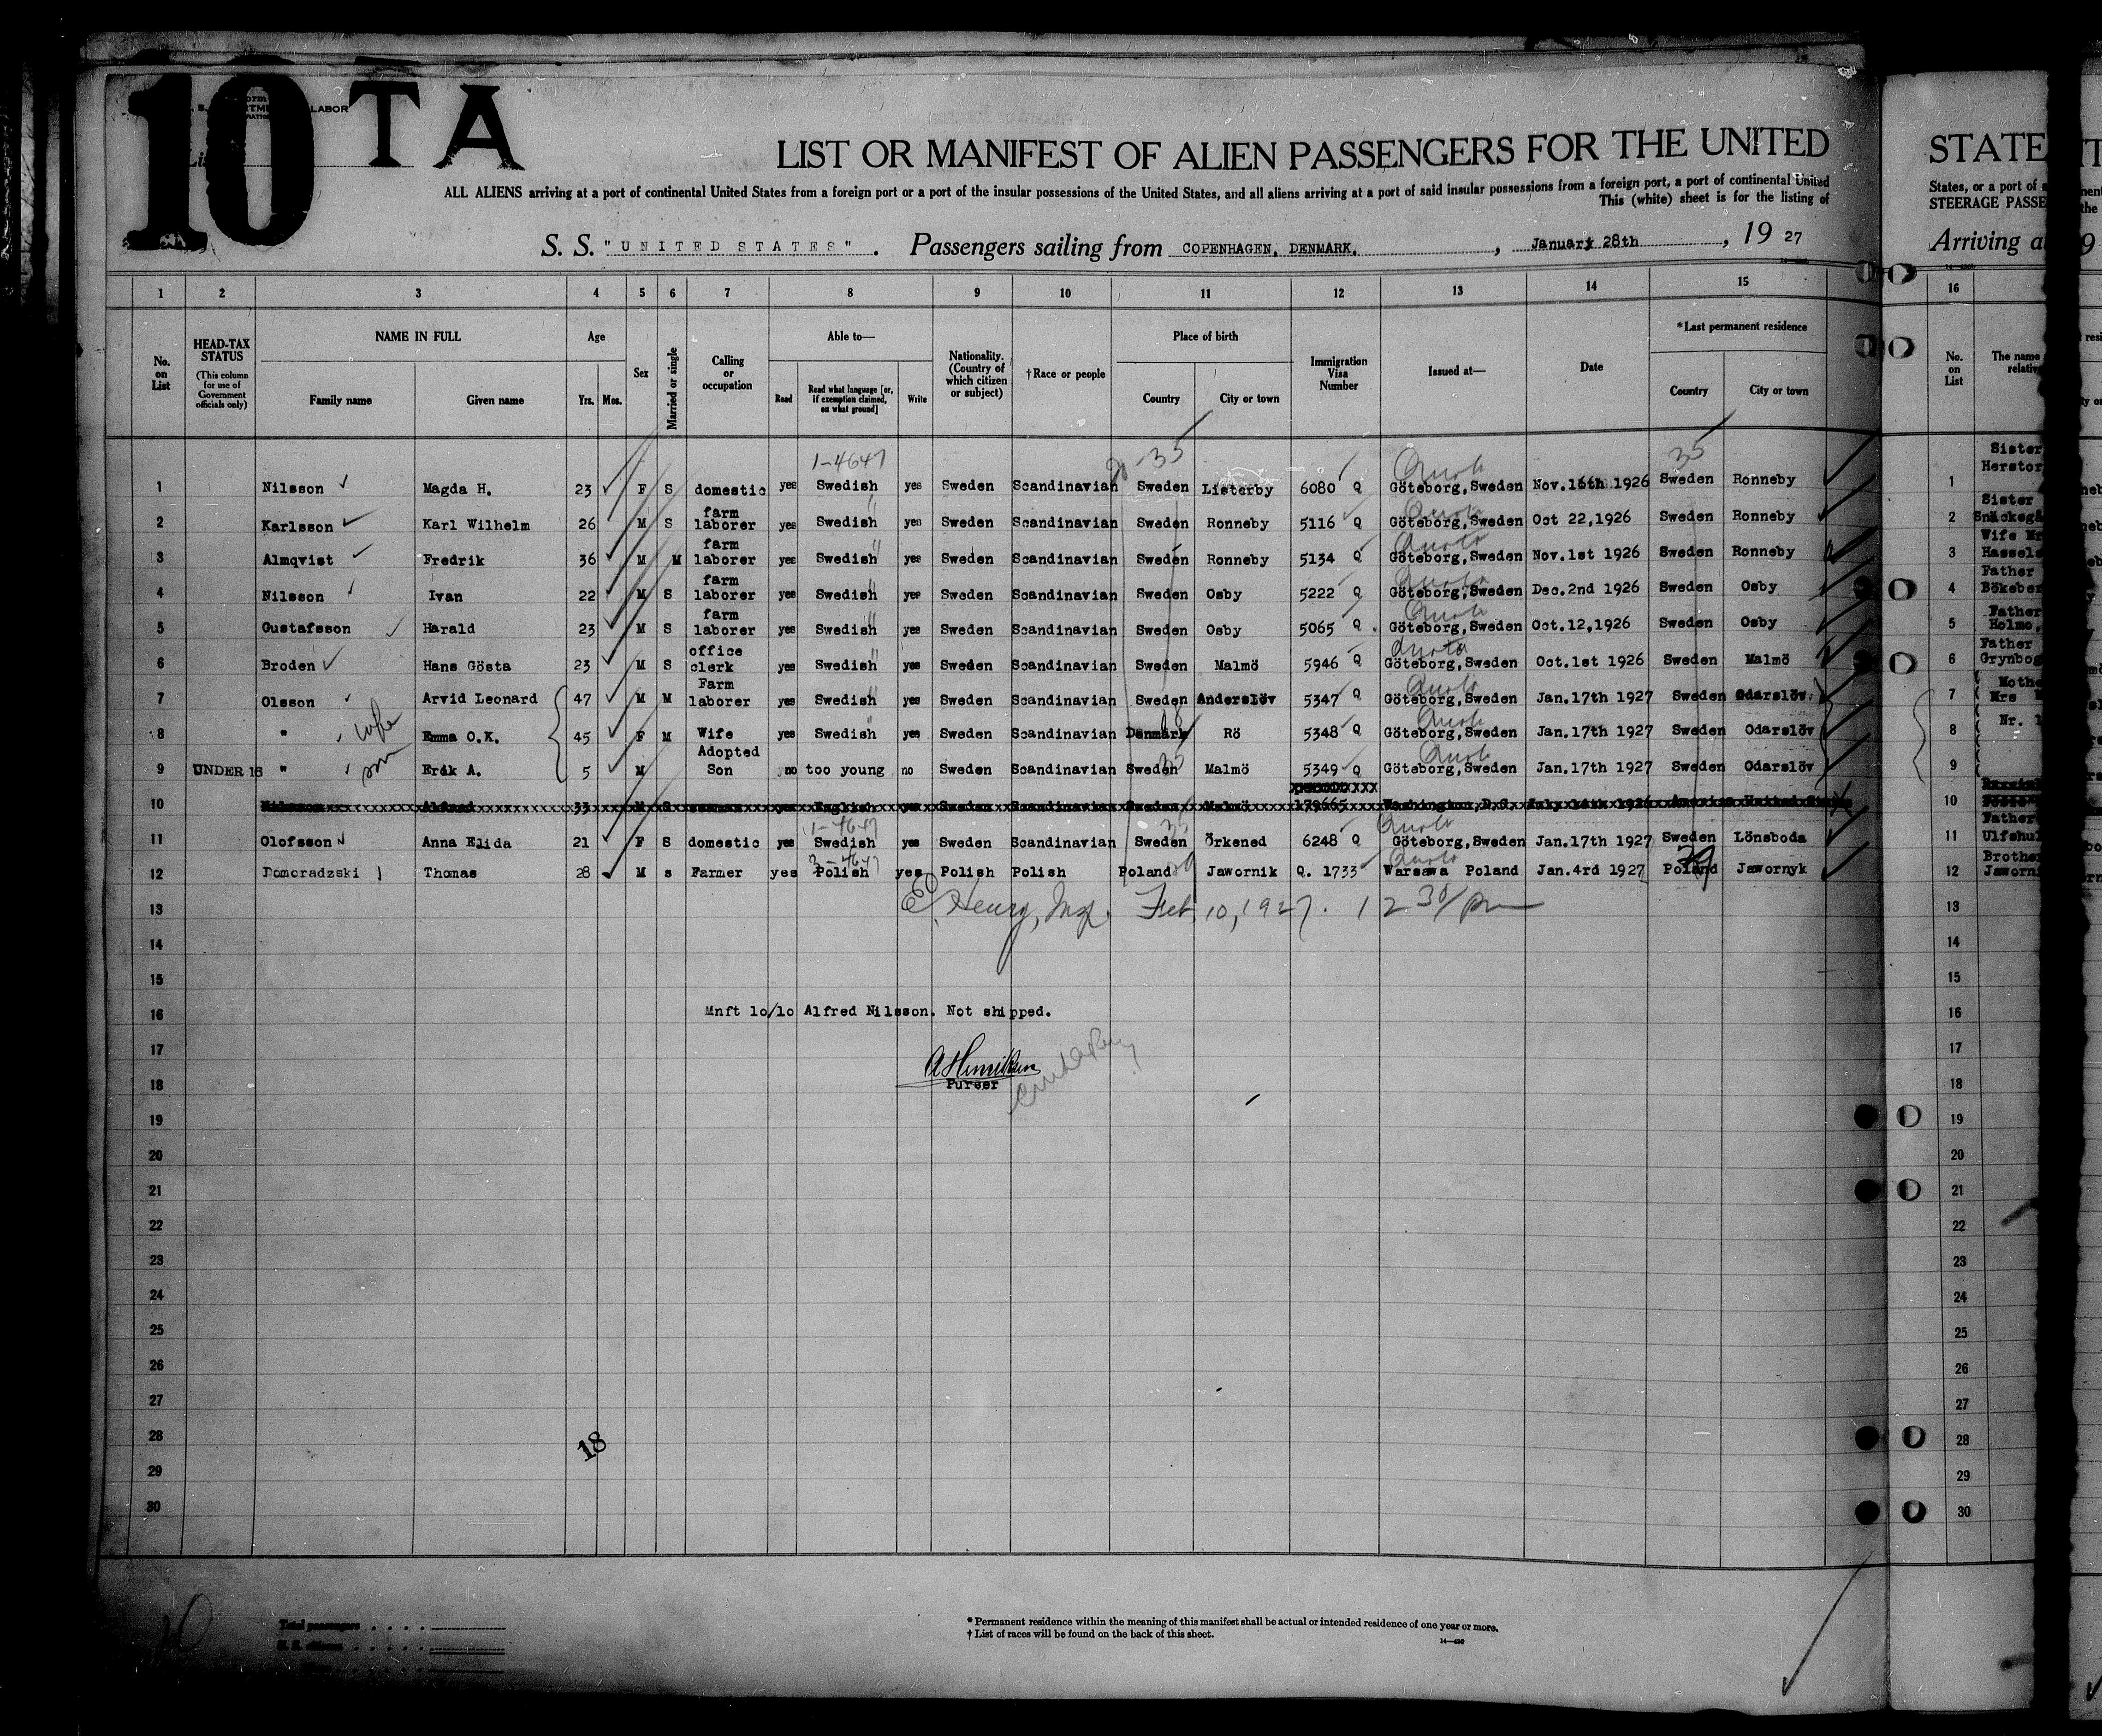 10 T A
LABOR
LIST OR MANIFEST OF ALIEN PASSENGERS FOR THE UNITED
ALL ALIENS arriving at a port of continental United States from a foreign port or a port of the insular possessions of the United States, and all aliens arriving at a port of said insular possessions from a foreign port, a port of continental United
This (white) sheet is for the listing of
S. S. "UNITED STATES". Passengers sailing from COPENHAGEN, DENMARK, January 28th, 19 27
STATE
States, or a port of
STEERAGE PASSE
Arriving a
1 2 3 4 5 6 7 8 9 10 11 12 13 14 15
16
No. on List
HEAD-TAX STATUS (This column for use of Government officials only)
NAME IN FULL
Family name Given name
Age
Yrs. Mos.
Sex
Married or single
Calling or occupation
Able to—
Read Read what language [or, if exemption claimed, on what ground] Write
Nationality. (Country of which citizen or subject)
†Race or people
Place of birth
Country City or town
Immigration Visa Number
Issued at—
Date
*Last permanent residence
Country City or town
No. on List
The name
1-4647 35 Quota 35
1 Nilsson Magda H. 23 F S domestic yes Swedish yes Sweden Scandinavian Sweden Listerby 6080 Q Göteborg,Sweden Nov.16th 1926 Sweden Ronneby
2 Karlsson Karl Wilhelm 26 M S farm laborer yes Swedish yes Sweden Scandinavian Sweden Ronneby 5116 Q Quota Göteborg,Sweden Oct 22,1926 Sweden Ronneby
3 Almqvist Fredrik 36 M M farm laborer yes Swedish yes Sweden Scandinavian Sweden Ronneby 5134 Q Quota Göteborg,Sweden Nov.1st 1926 Sweden Ronneby
4 Nilsson Ivan 22 M S farm laborer yes Swedish yes Sweden Scandinavian Sweden Osby 5222 Q Quota Göteborg,Sweden Dec.2nd 1926 Sweden Osby
5 Gustafsson Harald 23 M S farm laborer yes Swedish yes Sweden Scandinavian Sweden Osby 5065 Q. Quota Göteborg,Sweden Oct.12,1926 Sweden Osby
6 Broden Hans Gösta 23 M S office clerk yes Swedish yes Sweden Scandinavian Sweden Malmö 5946 Q Quota Göteborg,Sweden Oct.1st 1926 Sweden Malmö
7 Olsson Arvid Leonard 47 M M Farm laborer yes Swedish yes Sweden Scandinavian Sweden Anderslöv 5347 Q Quota Göteborg,Sweden Jan.17th 1927 Sweden Odarslöv
8 " wife Emma O.K. 45 F M Wife yes Swedish yes Sweden Scandinavian Denmark Rö 5348 Q Quota Göteborg,Sweden Jan.17th 1927 Sweden Odarslöv
9 UNDER 16 " son Erik A. 5 M Adopted Son no too young no Sweden Scandinavian Sweden Malmö 5349 Q Quota Göteborg,Sweden Jan.17th 1927 Sweden Odarslöv
10 Nilsson Alfred 33 M S yes English yes Sweden Scandinavian Sweden Malmö 179665 Washington,D.C.
11 Olofsson Anna Elida 21 F S domestic yes 1-4647 Swedish yes Sweden Scandinavian Sweden Örkened 6248 Q Quota Göteborg,Sweden Jan.17th 1927 Sweden Lönsboda
12 Domoradzski Thomas 28 M s Farmer yes 3-4647 Polish yes Polish Polish Poland Jawornik Q. 1733 Quota Warsawa Poland Jan.4rd 1927 Poland 39 Jawornyk
13 Henry, Insp. Feb 10, 1927. 12 30/pm
14
15
16 Mnft 10/10 Alfred Nilsson. Not shipped.
17
18 Purser
19
20
21
22
23
24
25
26
27
28 18
29
30
1 Sister
2 Sister
3 Wife Hassels
4 Father Bökeber
5 Father Holmo,
6 Father Grynbog
7 Mothe Mrs
8 Nr. 1
9
10
11 Father Ulfshul
12 Brothe Jaworn
13
14
15
16
17
18
19
20
21
22
23
24
25
26
27
28
29
30
Total passengers
U. S. citizens
* Permanent residence within the meaning of this manifest shall be actual or intended residence of one year or more.
† List of races will be found on the back of this sheet.
14—430